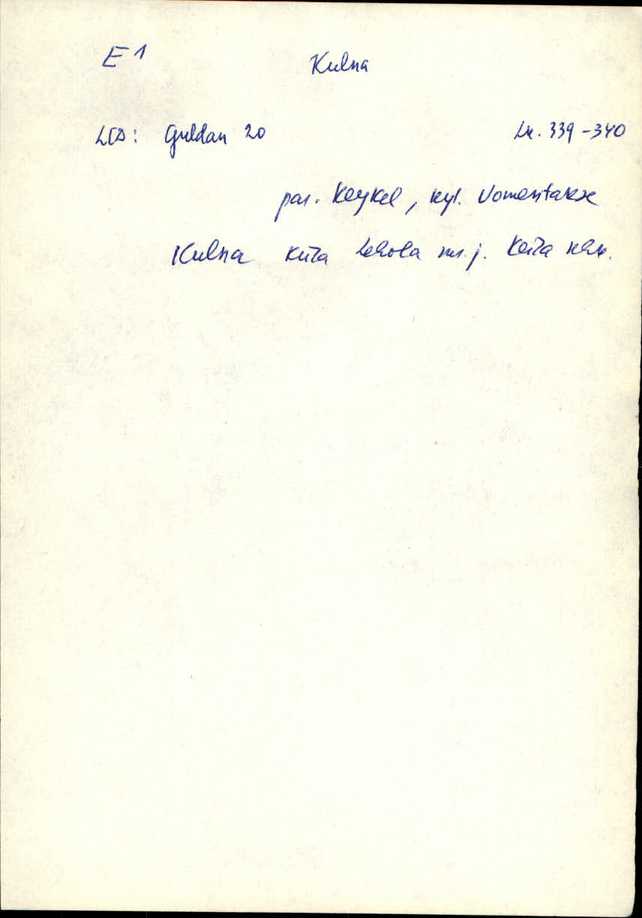 E 1
Kulna
LCD: Guldan 20 Lk. 339-340
par. Keykel, kyl. Uomentakse
Kulna küla Lehola ms. j. Keila khk.